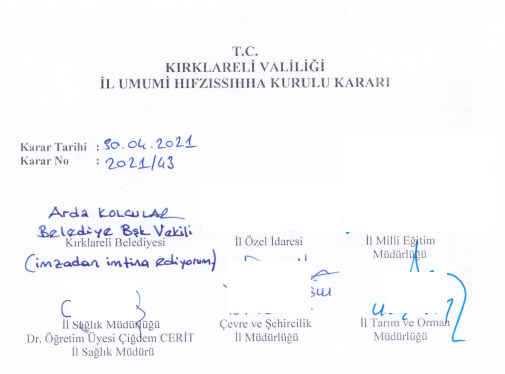 T.C.
KIRKLARELİ VALİLİĞİ
İL UMUMİ HIFZISSIHHA KURULU KARARI
Karar Tarihi : 30.04.2021
Karar No : 2021/43
Arda KOLCULAR
Belediye Bşk Vekili
Kırklareli Belediyesi
İl Özel İdaresi
İl Milli Eğitim
Müdürlüğü
(imzadan imtina ediyorum)
İl Sağlık Müdürlüğü
Dr. Öğretim Üyesi Çiğdem CERİT
İl Sağlık Müdürü
Çevre ve Şehircilik
İl Müdürlüğü
İl Tarım ve Orman
Müdürlüğü